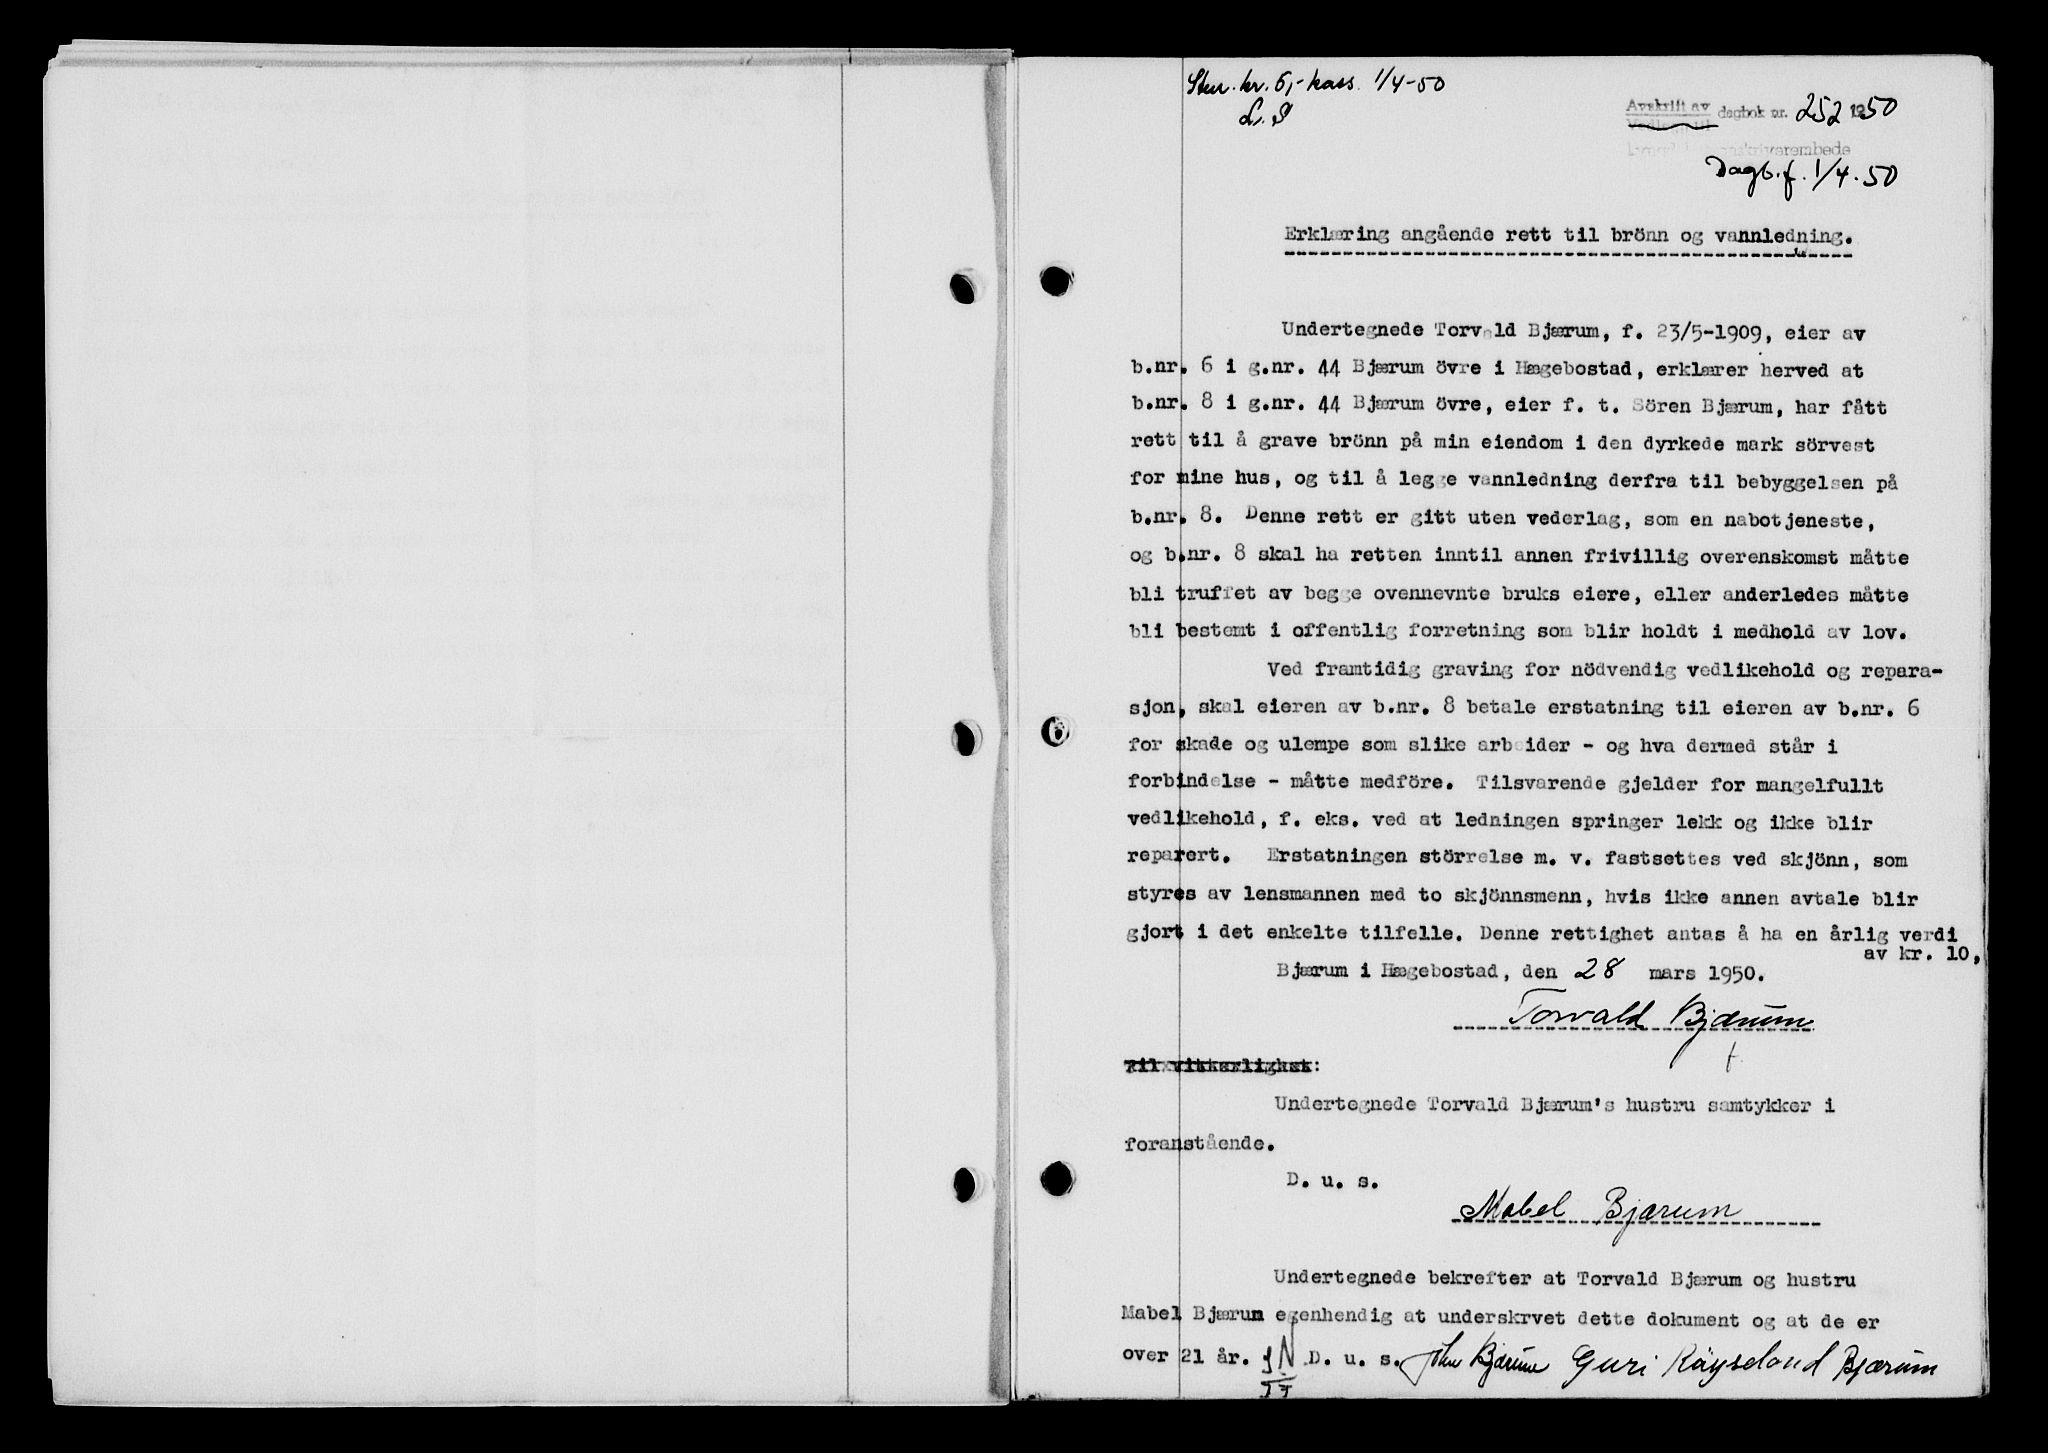 Stm. kr. 6,- kass. 1/4-50
L. S
Avskrift av dagbok nr. 252 1950
Vedlegg til
Lyngdal sorenskriverembede
Dagb.f. 1/4.50
Erklæring angående rett til brönn og vannledning.
Undertegnede Torvald Bjærum, f. 23/5-1909, eier av
b.nr. 6 i g.nr. 44 Bjærum övre i Hægebostad, erklærer herved at
b.nr. 8 i g.nr. 44 Bjærum övre, eier f. t. Sören Bjærum, har fått
rett til å grave brönn på min eiendom i den dyrkede mark sörvest
for mine hus, og til å legge vannledning derfra til bebyggelsen på
b.nr. 8. Denne rett er gitt uten vederlag, som en nabotjeneste,
og b.nr. 8 skal ha retten inntil annen frivillig overenskomst måtte
bli truffet av begge ovennevnte bruks eiere, eller anderledes måtte
bli bestemt i offentlig forretning som blir holdt i medhold av lov.
Ved framtidig graving for nödvendig vedlikehold og repara-
sjon, skal eieren av b.nr. 8 betale erstatning til eieren av b.nr. 6
for skade og ulempe som slike arbeider - og hva dermed står i
forbindelse - måtte medföre. Tilsvarende gjelder for mangelfullt
vedlikehold, f. eks. ved at ledningen springer lekk og ikke blir
reparert. Erstatningen störrelse m. v. fastsettes ved skjönn, som
styres av lensmannen med to skjönnsmenn, hvis ikke annen avtale blir
gjort i det enkelte tilfelle. Denne rettighet antas å ha en årlig verdi
av kr. 10,
Bjærum i Hægebostad, den 28 mars 1950.
Torvald Bjærum
Til vitterlighet:
Undertegnede Torvald Bjærum's hustru samtykker i
foranstående.
D. u. s.
Mabel Bjærum
Undertegnede bekrefter at Torvald Bjærum og hustru
Mabel Bjærum egenhendig at underskrvet dette dokument og at de er
over 21 år. D. u. s. Bjærum Guri Röyseland Bjærum